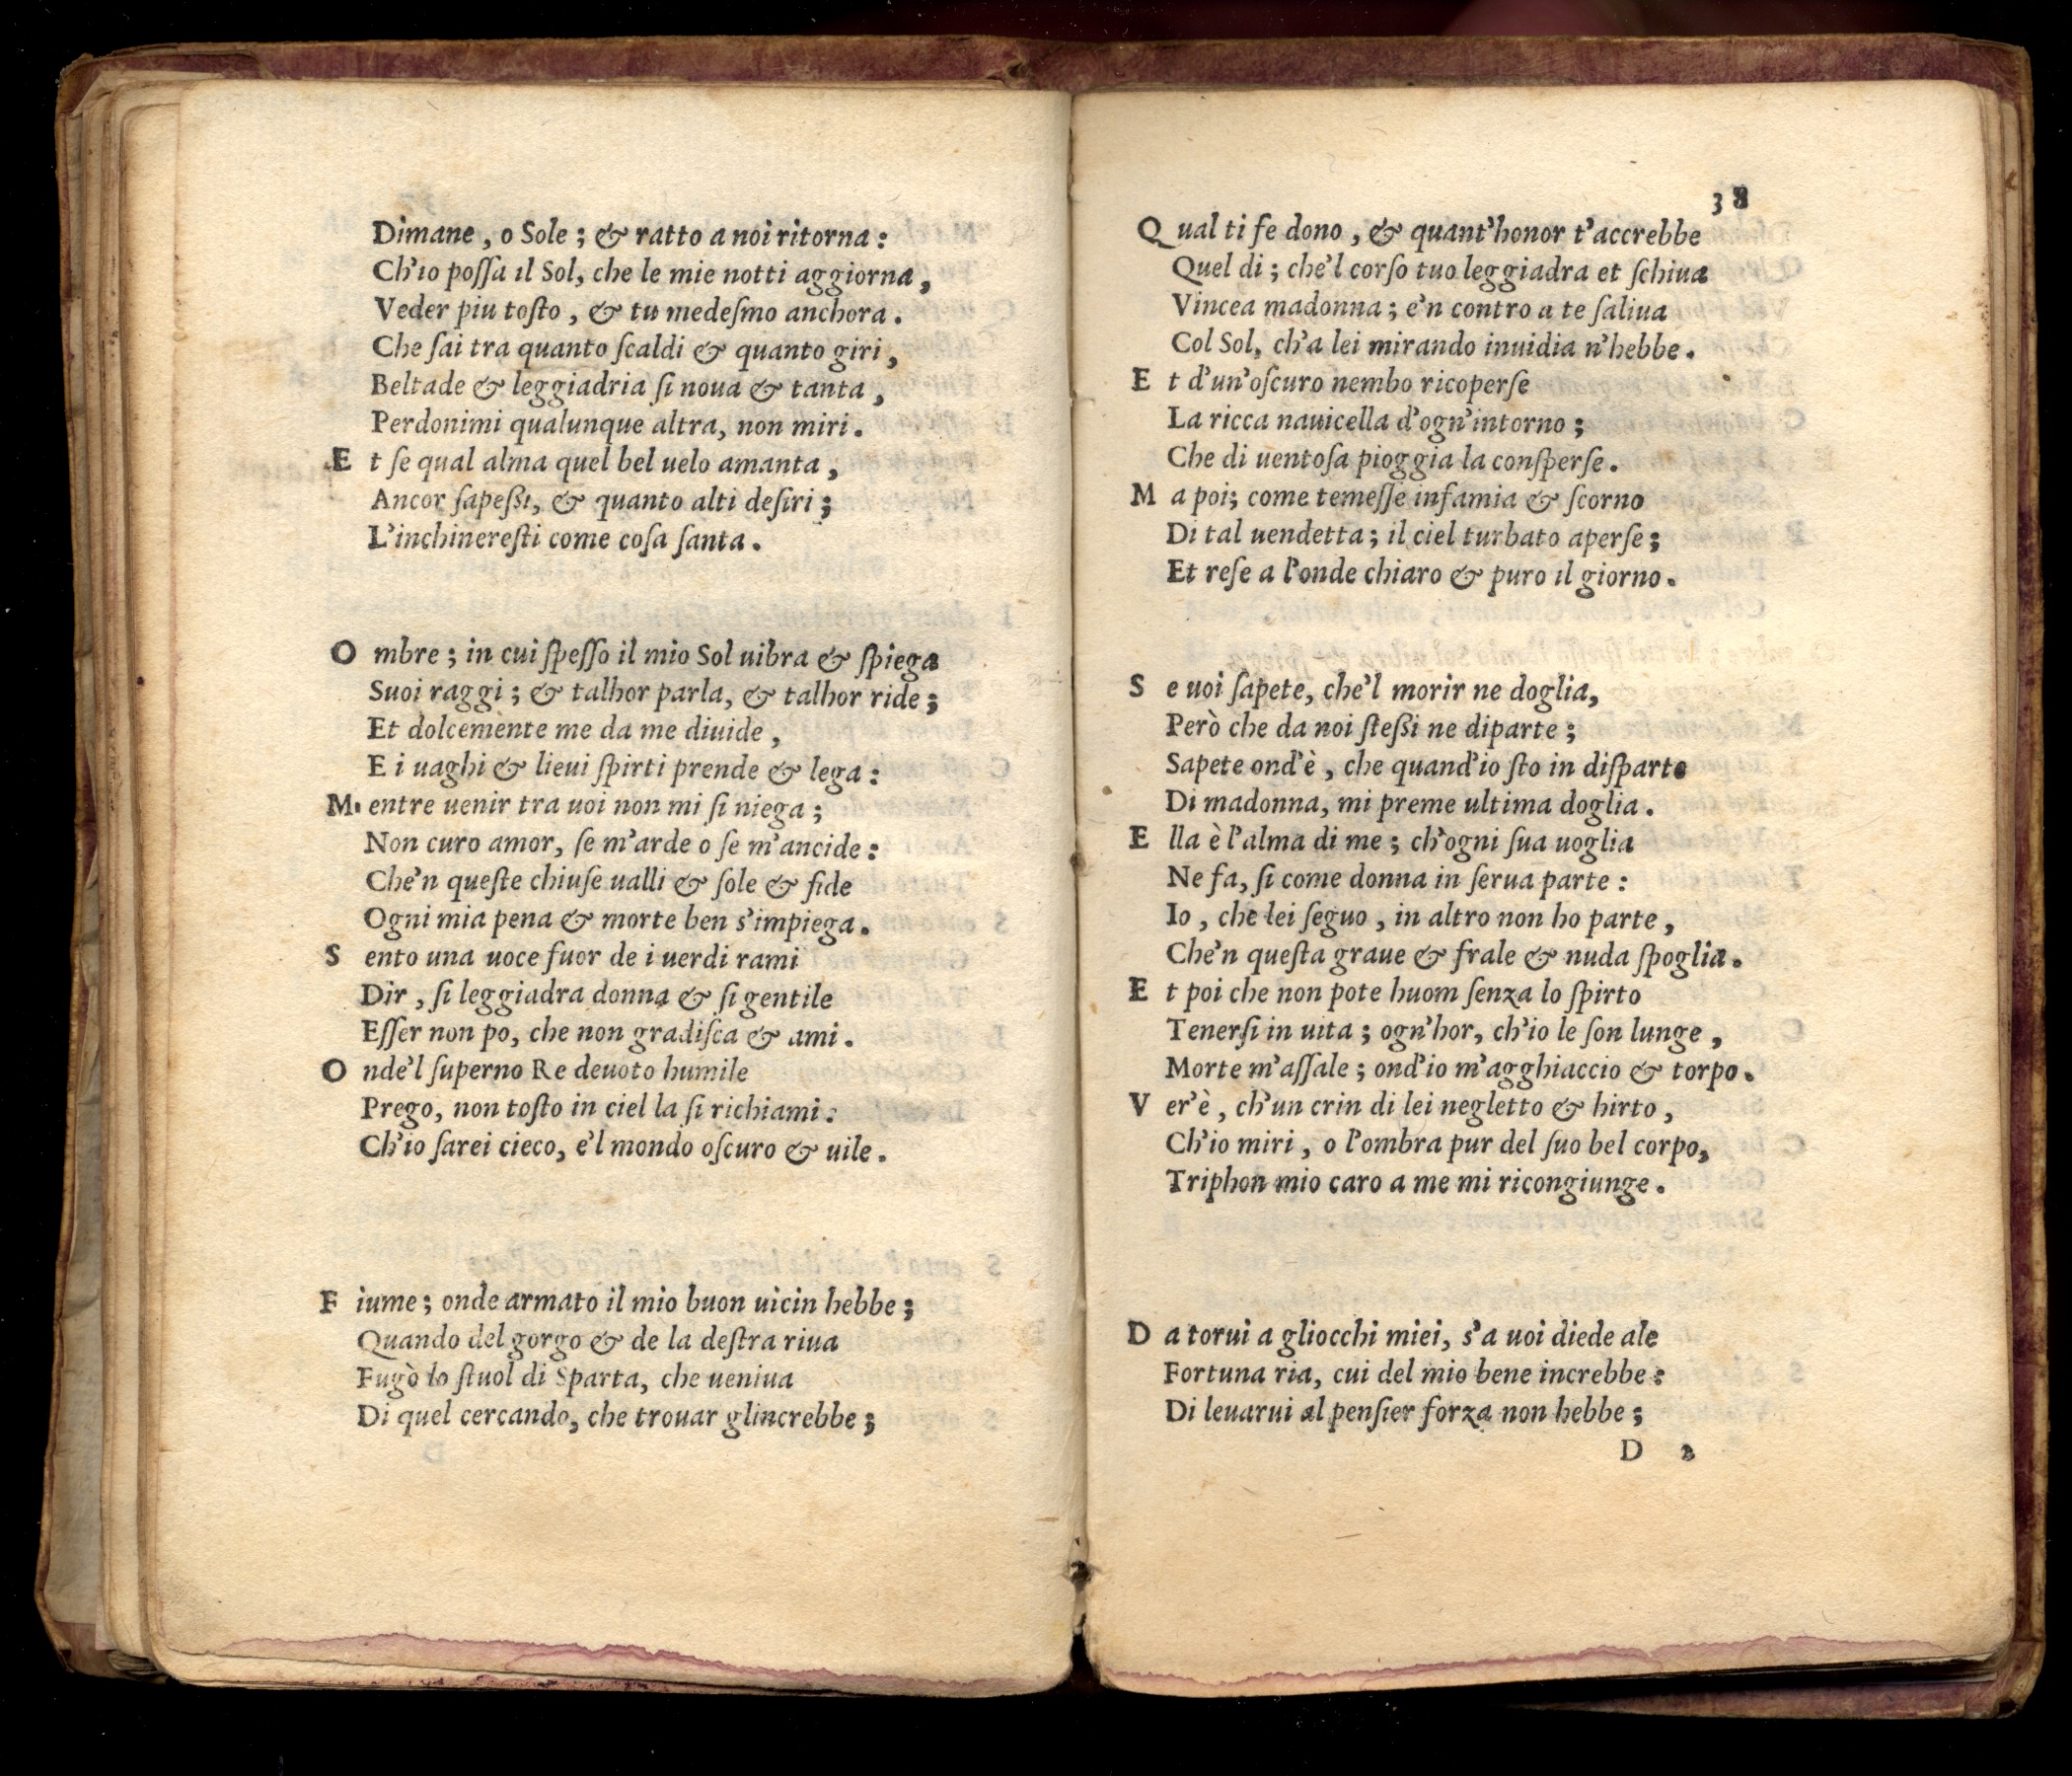 Dimane, o Sole; & ratto a noi ritorna:
Ch'io poſſa il Sol, che le mie notti aggiorna,
Veder piu toſto, & tu medeſmo anchora.
Che ſai tra quanto ſcaldi & quanto giri,
Beltade & leggiadria ſi noua & tanta,
Perdonimi qualunque altra, non miri.
E t ſe qual alma quel bel uelo amanta,
Ancor ſapeßi, & quanto alti deſiri;
L'inchinereſti come coſa ſanta.
O mbre; in cui ſpeſſo il mio Sol uibra & ſpiega
Suoi raggi; & talhor parla, & talhor ride;
Et dolcemente me da me diuide,
E i uaghi & lieui ſpirti prende & lega:
M entre uenir tra uoi non mi ſi niega;
Non curo amor, ſe m'arde o ſe m'ancide:
Che'n queſte chiuſe ualli & ſole & fide
Ogni mia pena & morte ben s'impiega.
S ento una uoce fuor de i uerdi rami
Dir, ſi leggiadra donna & ſi gentile
Eſſer non po, che non gradiſca & ami.
O nde'l ſuperno Re deuoto humile
Prego, non toſto in ciel la ſi richiami:
Ch'io ſarei cieco, e'l mondo oſcuro & uile.
F iume; onde armato il mio buon uicin hebbe;
Quando del gorgo & de la deſtra riua
Fugò lo ſtuol di Sparta, che ueniua
Di quel cercando, che trouar glincrebbe;
38
Q ual ti fe dono, & quant'honor t'accrebbe
Quel di; che'l corſo tuo leggiadra et ſchiua
Vincea madonna; e'n contro a te ſaliua
Col Sol, ch'a lei mirando inuidia n'hebbe.
E t d'un'oſcuro nembo ricoperſe
La ricca nauicella d'ogn'intorno;
Che di uentoſa pioggia la conſperſe.
M a poi; come temeſſe infamia & ſcorno
Di tal uendetta; il ciel turbato aperſe;
Et reſe a l'onde chiaro & puro il giorno.
S e uoi ſapete, che'l morir ne doglia,
Però che da noi ſteßi ne diparte;
Sapete ond'è, che quand'io ſto in diſparte
Di madonna, mi preme ultima doglia.
E lla è l'alma di me; ch'ogni ſua uoglia
Ne fa, ſi come donna in ſerua parte:
Io, che lei ſeguo, in altro non ho parte,
Che'n queſta graue & frale & nuda ſpoglia.
E t poi che non pote huom ſenza lo ſpirto
Tenerſi in uita; ogn'hor, ch'io le ſon lunge,
Morte m'aſſale; ond'io m'agghiaccio & torpo.
V er'è, ch'un crin di lei negletto & hirto,
Ch'io miri, o l'ombra pur del ſuo bel corpo,
Triphon mio caro a me mi ricongiunge.
D a torui a gliocchi miei, s'a uoi diede ale
Fortuna ria, cui del mio bene increbbe:
Di leuarui al penſier forza non hebbe;
D 2